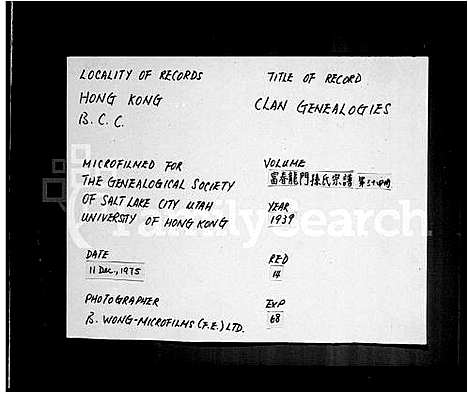 LOCALITY OF RECORDS
HONG KONG
B.C.C.
TITLE OF RECORD
CLAN GENEALOGIES
MICROFILMED FOR
THE GENEALOGICAL SOCIETY
OF SALT LAKE CITY UTAH
UNIVERSTY OF HONG KONG
VOLUME
富春龍門孫氏宗譜
YEAR
1939
DATE
11 Dec., 1975
RED
14
PHOTOGRAPHER
B. WONG-MICROFILMS (F.E.) LTD.
EXP
68
FamilySearch